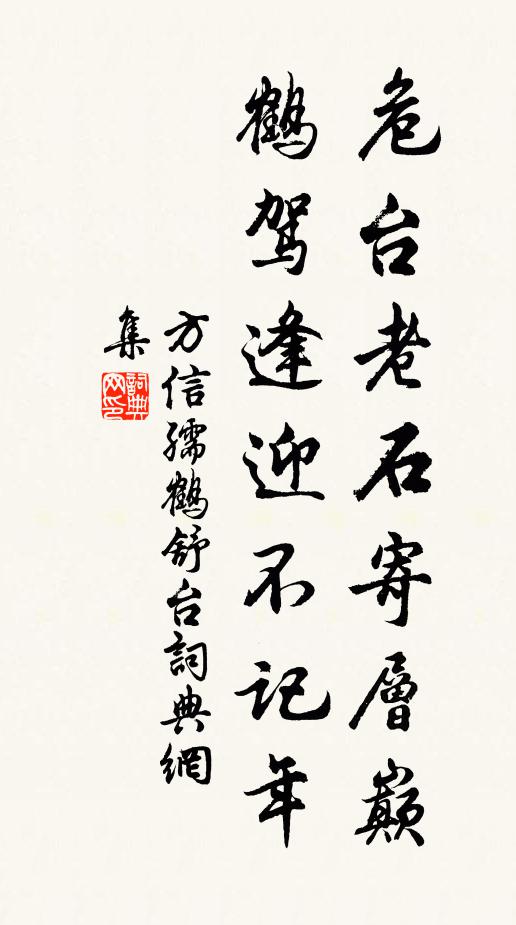 危台老石寄層巔
鶴駕逢迎不記年
方信孺鶴舒台詞典網
集
詞典網印